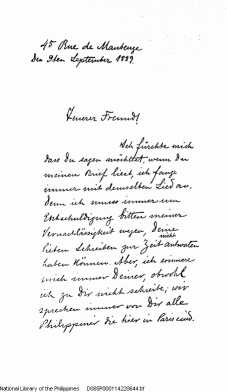 45 Rue de Maubeuge
Den 9ten September 1889.
Teurer Freund!
Ich fürchte mich
dass Du sagen möchtest, wenn Du
meinen Brief liest, ich fange
immer mit demselben Lied an.
Denn ich muss immer um
Entschuldigung bitten meiner
Vernachlässigkeit wegen, deine
lieben Schreiben zur Zeit antworten
haben können. Aber, ich erinnere
mich immer Deiner, obwohl
ich zu Dir nicht schreibe, wir
sprechen immer von Dir alle
Philippiner die hier in Paris sind.
National Library of the Philippines